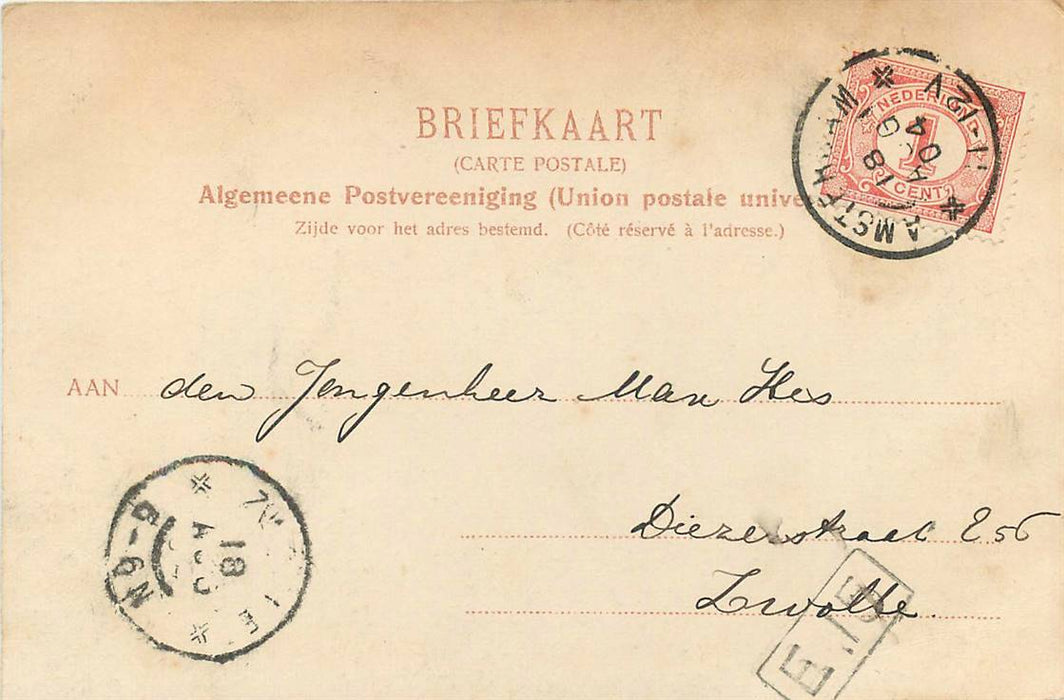 BRIEFKAART
(CARTE POSTALE)
Algemeene Postvereeniging (Union postale unive
Zijde voor het adres bestemd. (Côté réservé à l'adresse.)
NEDERLAND
1
CENT
AMSTERDAM
11-12V
18
04
AAN den Jongenheer Max Hes
Diezerstraat 256
Zwolle
5-6N
18
AUG